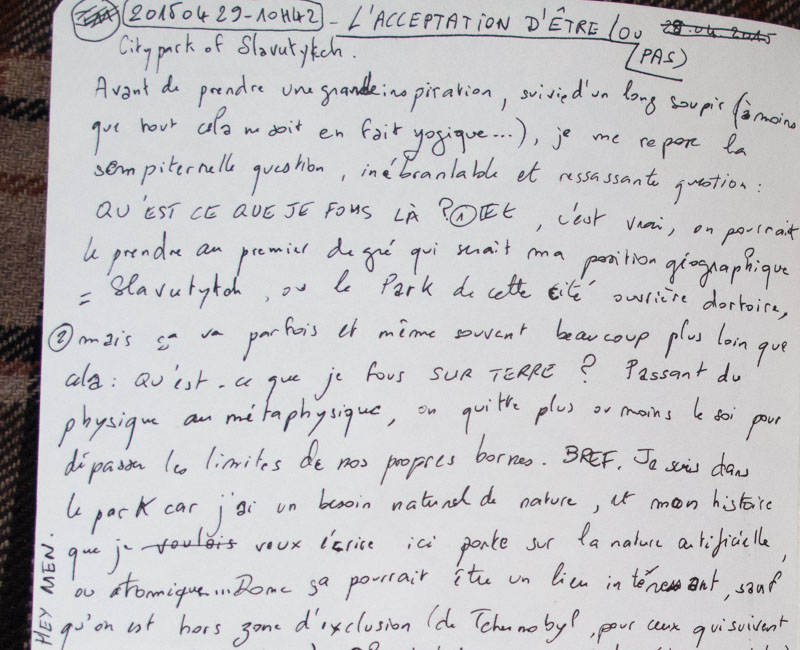 20150429-10H42 - L'ACCEPTATION D'ÊTRE (OU PAS) 28.04.2015
City park of Slavutytch.
Avant de prendre une grande inspiration, suivie d'un long soupir (à moins
que tout cela ne soit en fait yogique...), je me repose la
sempiternelle question, inébranlable et ressassante question :
QU'EST CE QUE JE FOUS LÀ ? ① ET, c'est vrai, on pourrait
le prendre au premier degré qui serait ma position géographique
= Slavutytch, ou le Park de cette cité ouvrière dortoire,
② mais ça va parfois et même souvent beaucoup plus loin que
cela : QU'est-ce que je fous SUR TERRE ? Passant du
physique au métaphysique, on quitte plus ou moins le soi pour
dépasser les limites de nos propres bornes. BREF. Je suis dans
le park car j'ai un besoin naturel de nature, et mon histoire
que je voulais veux écrire ici porte sur la nature artificielle,
ou atomique... Donc ça pourrait être un lieu intéressant, sauf
qu'on est hors zone d'exclusion (de Tchernobyl, pour ceux qui suivent
HEY MEN.